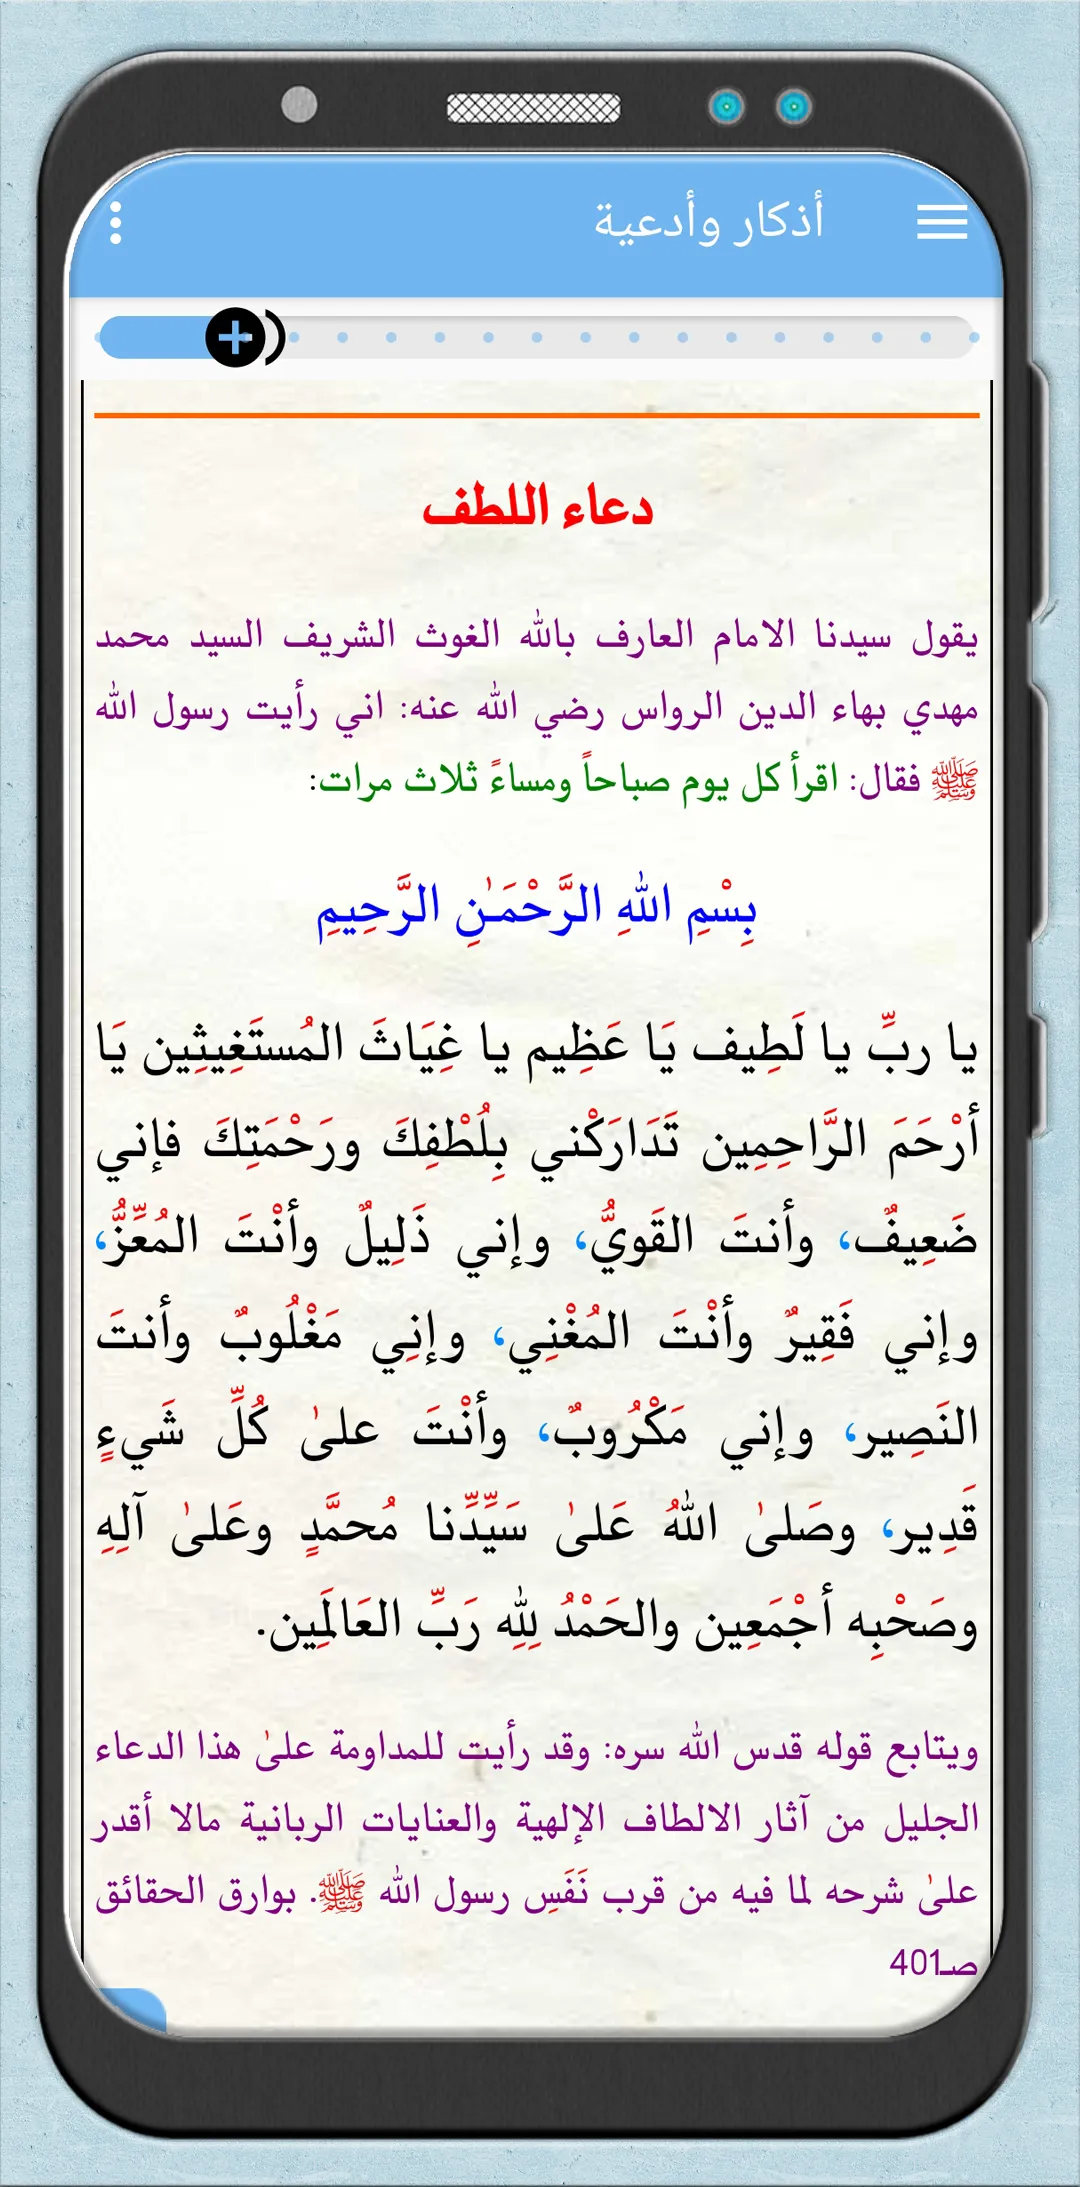 أذكار وأدعية
دعاء اللطف
يقول سيدنا الامام العارف بالله الغوث الشريف السيد محمد
مهدي بهاء الدين الرواس رضي الله عنه: اني رأيت رسول الله
ﷺ فقال: اقرأ كل يوم صباحاً ومساءً ثلاث مرات:
بِسْمِ اللهِ الرَّحْمَـٰنِ الرَّحِيمِ
يا ربِّ يا لَطِيف يَا عَظِيم يا غِيَاثَ المُستَغِيثِين يَا
أرْحَمَ الرَّاحِمِين تَدَارَكْني بِلُطْفِكَ ورَحْمَتِكَ فإني
ضَعِيفٌ، وأنتَ القَويُّ، وإني ذَلِيلٌ وأنْتَ المُعِّزُّ،
وإني فَقِيرٌ وأنْتَ المُغْنِي، وإنِي مَغْلُوبٌ وأنتَ
النَصِير، وإني مَكْرُوبٌ، وأنْتَ علىٰ كُلِّ شَيءٍ
قَدِير، وصَلىٰ اللهُ عَلىٰ سَيِّدِّنا مُحمَّدٍ وعَلىٰ آلِهِ
وصَحْبِه أجْمَعِين والحَمْدُ لِلِه رَبِّ العَالَمِين.
ويتابع قوله قدس الله سره: وقد رأيت للمداومة علىٰ هذا الدعاء
الجليل من آثار الالطاف الإلهية والعنايات الربانية مالا أقدر
علىٰ شرحه لما فيه من قرب نَفَسِ رسول الله ﷺ. بوارق الحقائق
صـ401